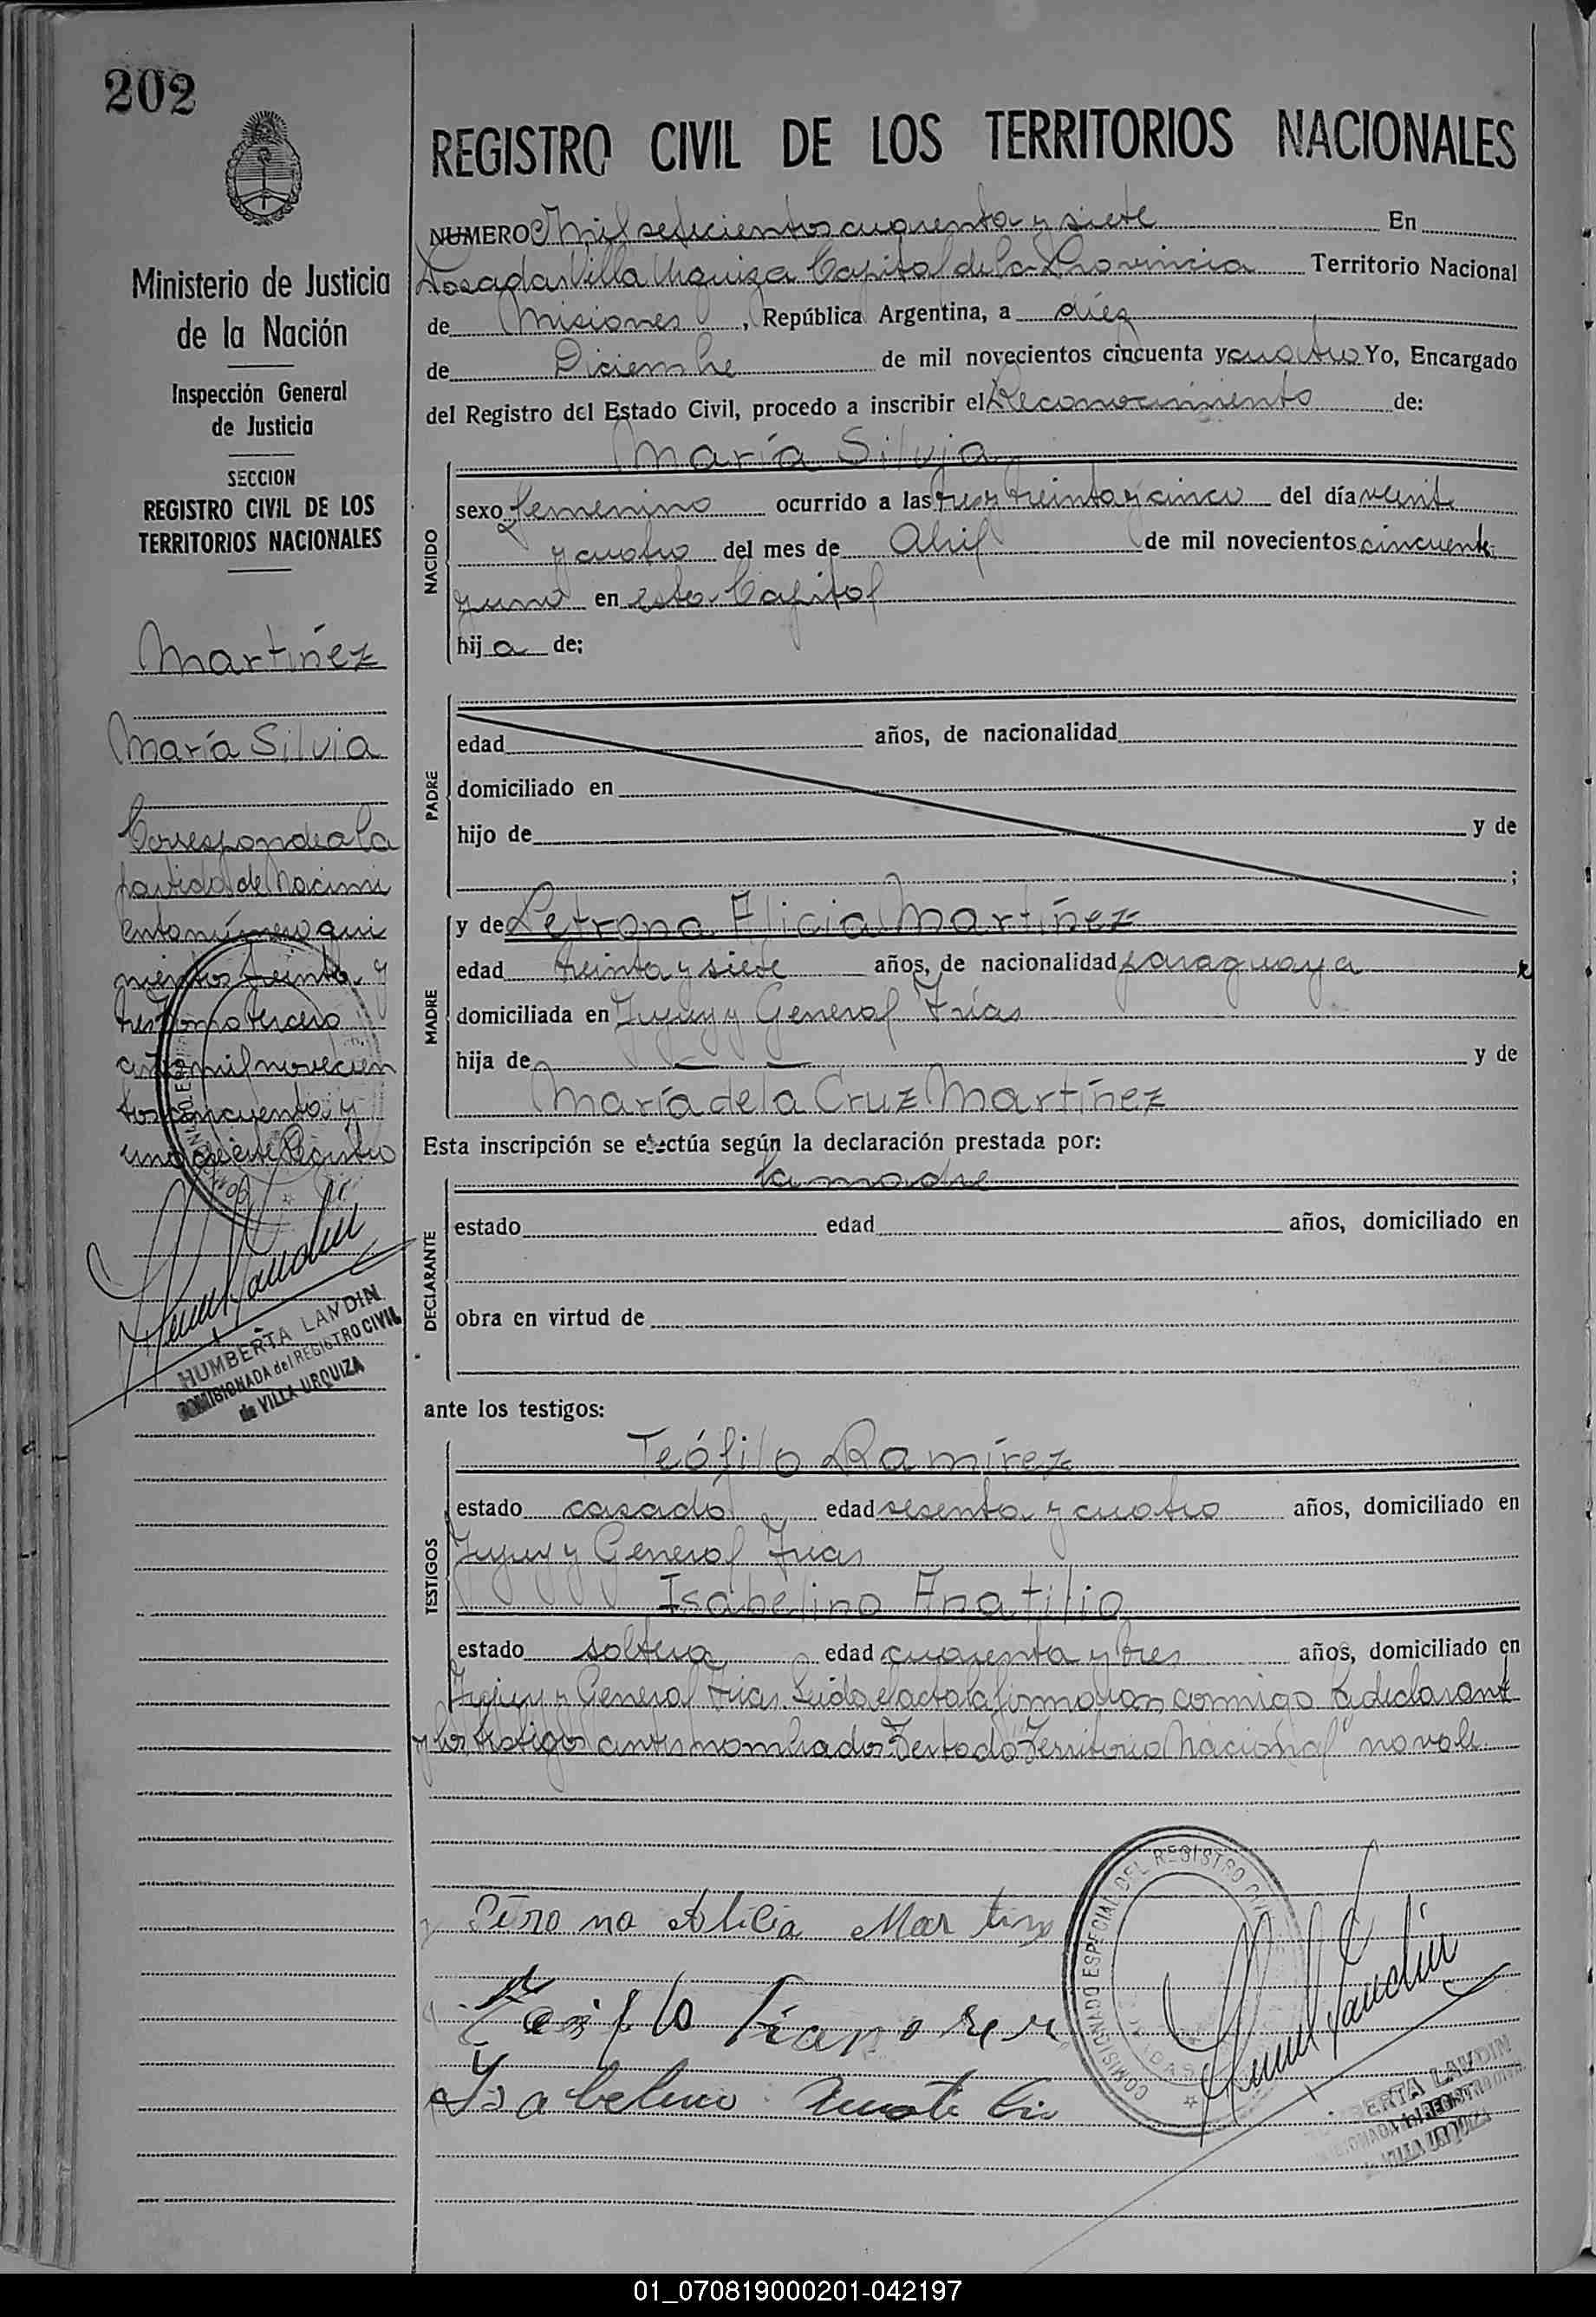 202
REGISTRO CIVIL DE LOS TERRITORIOS NACIONALES
NUMERO Mil setecientos cuarenta y siete En
Posadas Villa Urquiza Capital de la Provincia Territorio Nacional
de Misiones, República Argentina, a diez
de Diciembre de mil novecientos cincuenta y cuatro Yo, Encargado
del Registro del Estado Civil, procedo a inscribir el Reconocimiento de:
María Silvia
NACIDO
sexo femenino ocurrido a las tres y treinta y cinco del día veinti
y cuatro del mes de Abril de mil novecientos cincuenta
y uno en esta Capital
hija de;
PADRE
edad años, de nacionalidad
domiciliado en
hijo de y de
;
MADRE
y de Petrona Alicia Martínez
edad treinta y siete años, de nacionalidad paraguaya
domiciliada en Jujuy y General Frías
hija de y de
María de la Cruz Martínez
Esta inscripción se efectúa según la declaración prestada por:
la madre
DECLARANTE
estado edad años, domiciliado en
obra en virtud de
ante los testigos:
TESTIGOS
Teófilo Ramírez
estado casado edad sesenta y cuatro años, domiciliado en
Jujuy y General Frias
Isabelino Anatilio
estado soltero edad cuarenta y tres años, domiciliado en
Jujuy y General Frias. Leida el acta la firmaron conmigo la declarante
y los testigos antes nombrados. Testado "Territorio Nacional" no vale.
Petrona Alicia Martinez
Isabelino
COMISIONADO ESPECIAL DEL REGISTRO CIVIL
HUMBERTA LANDIN
COMISIONADA del REGISTRO CIVIL
de VILLA URQUIZA
Ministerio de Justicia
de la Nación
Inspección General
de Justicia
SECCION
REGISTRO CIVIL DE LOS
TERRITORIOS NACIONALES
Martínez
María Silvia
Corresponde a la
partida de Nacimi
ento número qui
nientos treinta y
tres Tomo tercero
año mil novecien
tos cincuenta y
uno de este Registro
HUMBERTA LANDIN
COMISIONADA del REGISTRO CIVIL
de VILLA URQUIZA
01_070819000201-042197